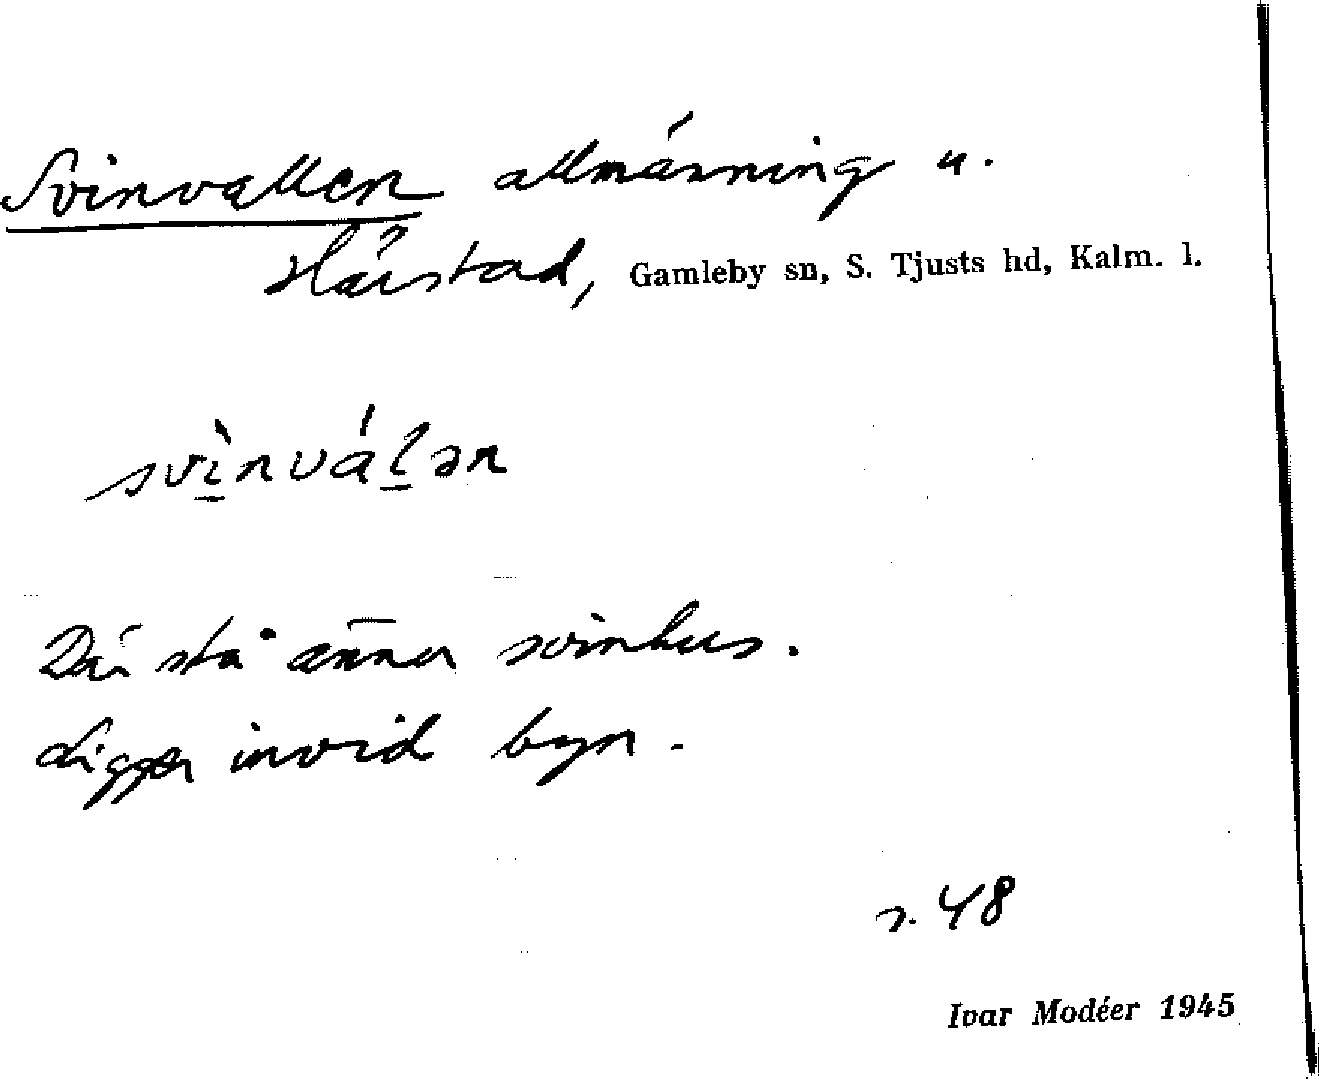 Svinvallen allmänning u.
Härstad, Gamleby sn, S. Tjusts hd, Kalm. l.
svì̲nvál̲ən
Där stå ännu svinhus.
Ligger invid byn.
s. 48
Ivar Modéer 1945